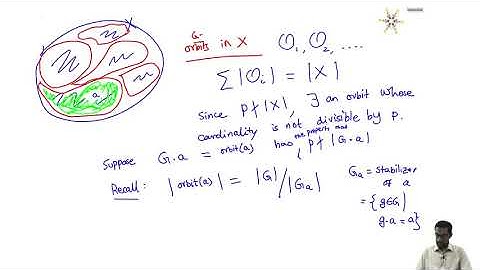 X
G-
orbits in X O₁, O₂, ....
∑ |Oᵢ| = |X|
Since p ∤ |X|, ∃ an orbit whose
cardinality is not divisible by p.
Suppose G·a = orbit(a) has the property that p ∤ |G·a|
Recall: |orbit(a)| = |G| / |Gₐ|
Gₐ = Stabilizer
of a
= {g∈G |
g·a = a}
a